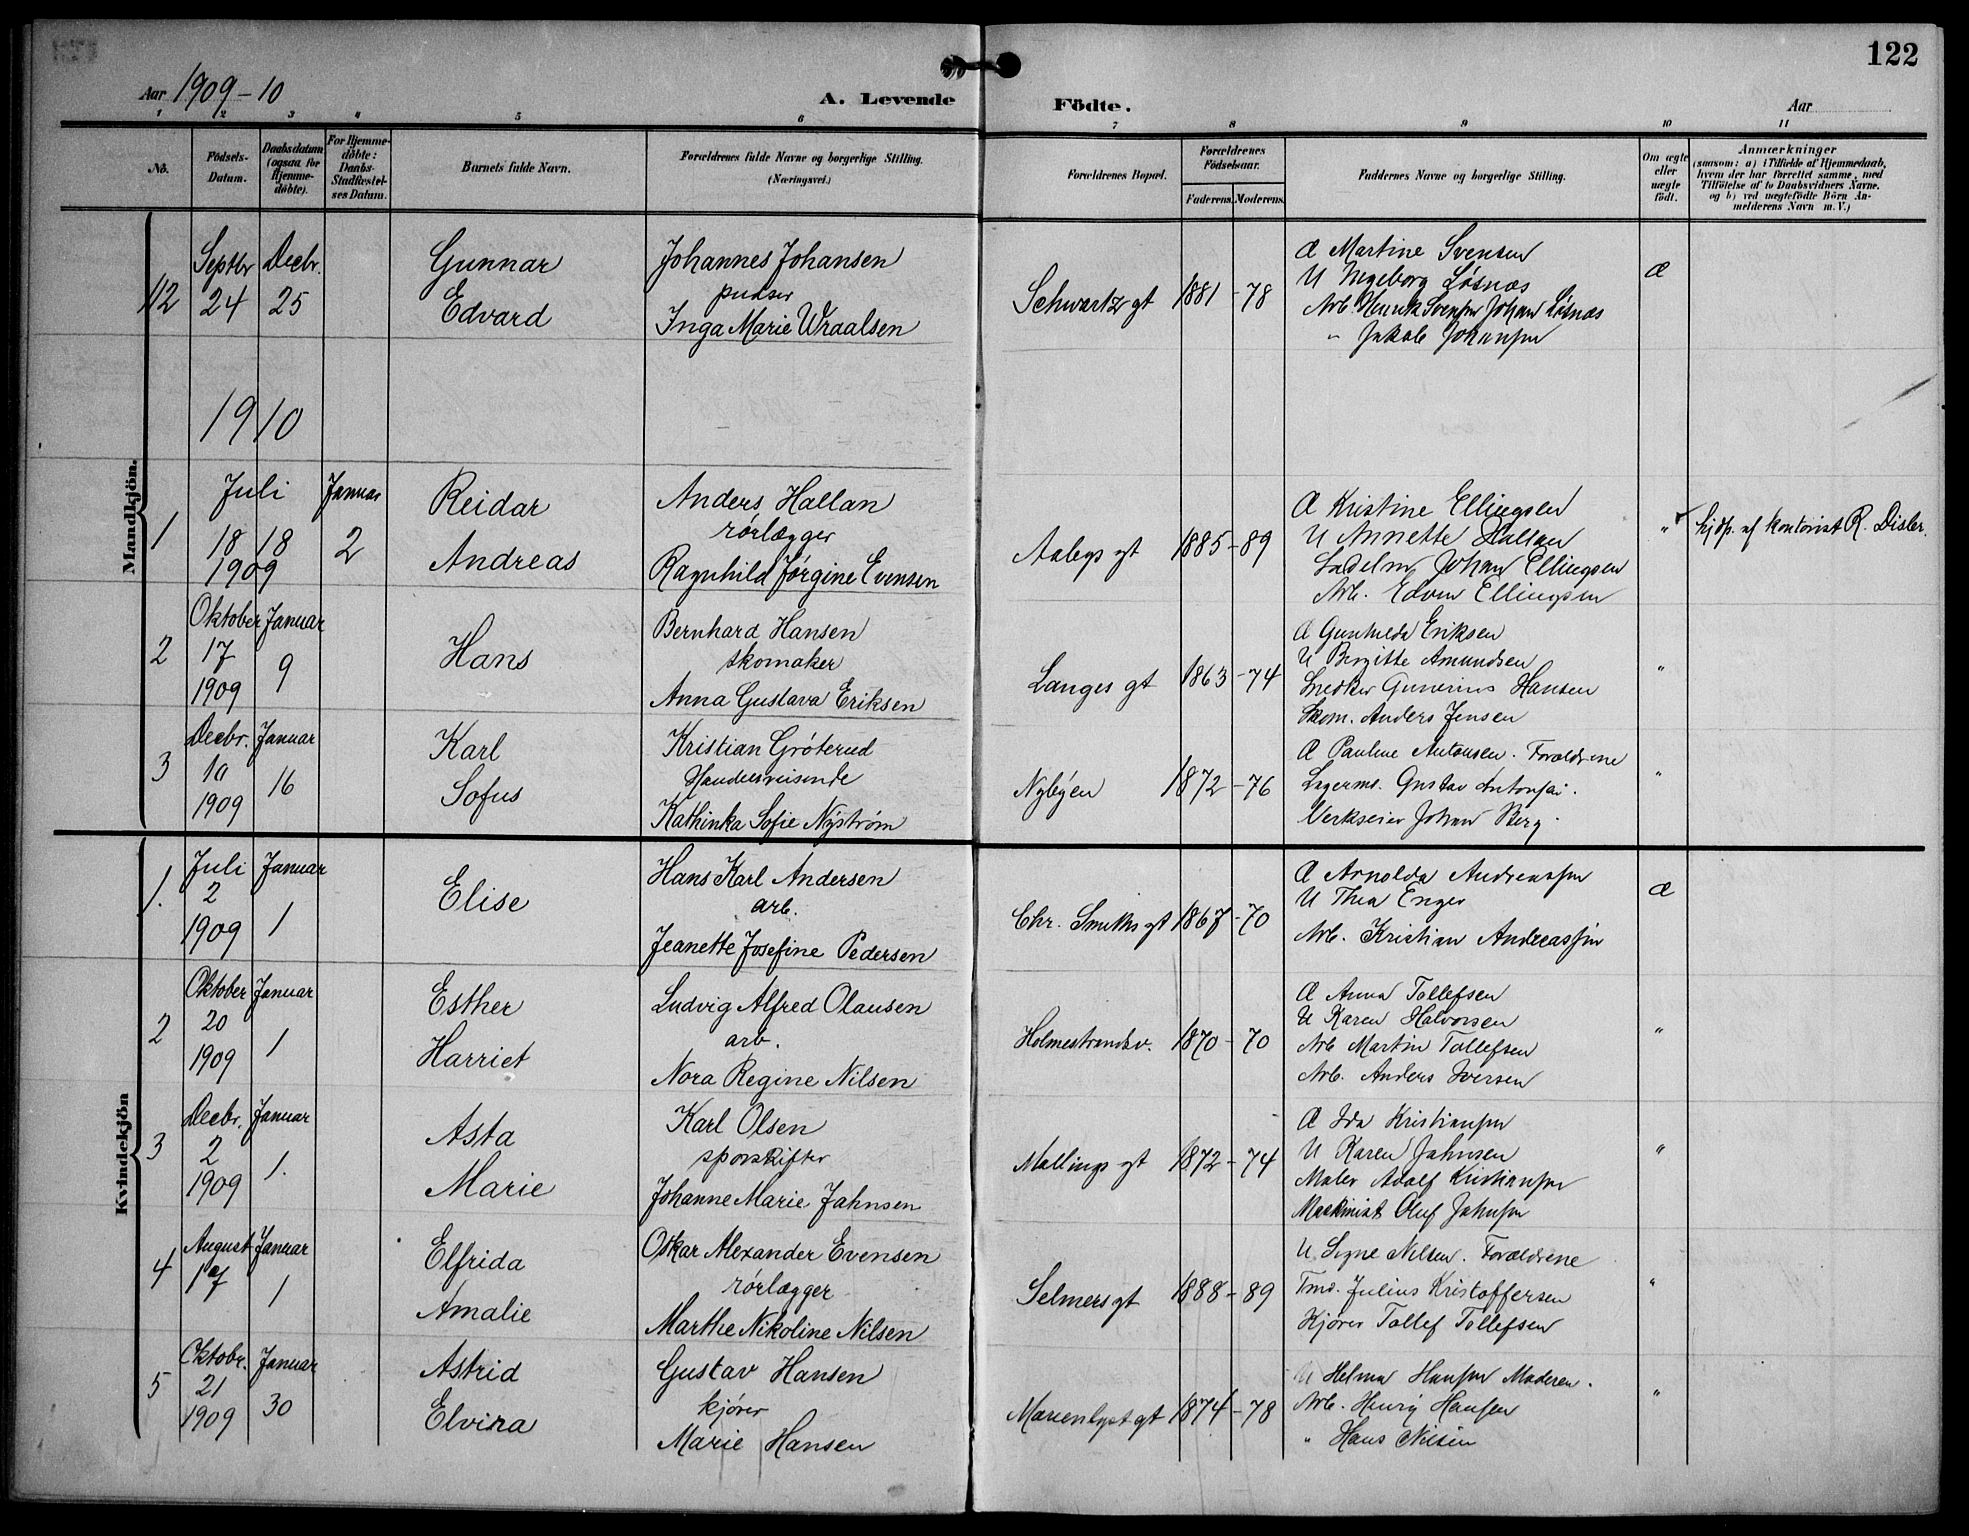 122
Aar 1909-10
A. Levende Födte.
Aar
1 2 3 4 5 6 7 8 9 10 11
No.
Födsels-Datum.
Daabsdatum (ogsaa for Hjemme-döbte).
For Hjemme-döbte: Daabs-Stadfæstel-ses Datum.
Barnets fulde Navn.
Forældrenes fulde Navne og borgerlige Stilling. (Næringsvei.)
Forældrenes Bopæl.
Forældrenes Födselsaar.
Faderens. Moderens.
Faddernes Navne og borgerlige Stilling.
Om ægte eller uægte födt.
Anmærkninger
(saasom: a) i Tilfælde af Hjemmedaab, hvem der har forrettet samme, med Tilföielse af to Daabsvidners Navne. og b) ved uægtefödte Börn An-melderens Navn m. V.)
Mandkjön.
112
Septbr 24
Decbr. 25
Gunnar
Edvard
Johannes Johansen
pudser
Inga Marie Wraalsen
Schwartz gt
1881-78
Æ Martine Svensen
U Ingeborg Løsnæs
Arb. Henrik Svensen Johan Løsnæs
" Jakob Johansen
Æ
1910
1
Juli
18 18
1909
Januar
2
Reidar
Andreas
Anders Hallan
rörlægger
Ragnhild Jørgine Evensen
Aabygt
1885-89
Æ Kristine Ellingsen
U Annette Hallan
Johan Ellingsen
Arb. Edvin Ellingsen
"
hjdp. af kontorist R. Disler.
2
Oktober
17
1909
Januar
9
Hans
Bernhard Hansen
skomaker
Anna Gustava Eriksen
Langes gt
1863-74
Æ Gunhilda Eriksen
U Birgitte Amundsen
Snedker Gunerius Hansen
Skom. Anders Jensen
"
3
Decbr.
10
1909
Januar
16
Karl
Sofus
Kristian Gröterud
Handelsreisende
Kathinka Sofie Nyström
Nybyen
1872-76
Æ Pauline Antonsen. Forældrene
Lagerm. Gustav Antonsen.
Verkseier Johan Berg.
"
Kvindekjön
1.
Juli
2
1909
Januar
1
Elise
Hans Karl Andersen
arb.
Jeanette Josefine Pedersen
Chr. Smiths gt
1867-70
Æ Arnolda Andreassen
U Thea Enger
Arb. Kristian Andreassen
Æ
2
Oktober
20
1909
Januar
1
Esther
Harriet
Ludvig Alfred Olausen
arb.
Nora Regine Nilsen
Holmestrandsv.
1870-70
Æ Anna Tollefsen
U Karen Halvorsen
Arb Martin Tollefsen
Arb. Anders Iversen
"
3
Decbr.
2
1909
Januar
1.
Asta
Marie
Karl Olsen
sporskifter
Johanne Marie Jahnsen
Mallings gt
1872-74
Æ Ida Kristiansen
U Karen Jahnsen
Maler Adolf Kristiansen
Maskinist Oluf Jahnsen
"
4
August
17
Januar
1
Elfrida
Amalie
Oskar Alexander Evensen
rörlægger
Marthe Nikoline Nilsen
Selmers gt
1888-89
U Signe Nilsen. Forældrene
Tmd. Julius Kristoffersen
Kjører Tollef Tollefsen
"
5
Oktobr.
21
1909
Januar
30
Astrid
Elvira
Gustav Hansen
kjører
Marie Hansen
Marienlyst gt
1874-78
U Helma Hansen Moderen.
Arb. Henrij Hansen
" Hans Nilsen
"